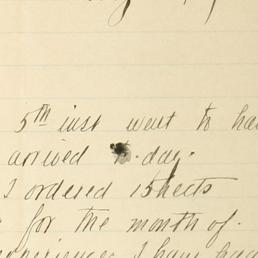 5th inst went to ha
arrived day.
I ordered 15 hects
for the month of
experience I have had